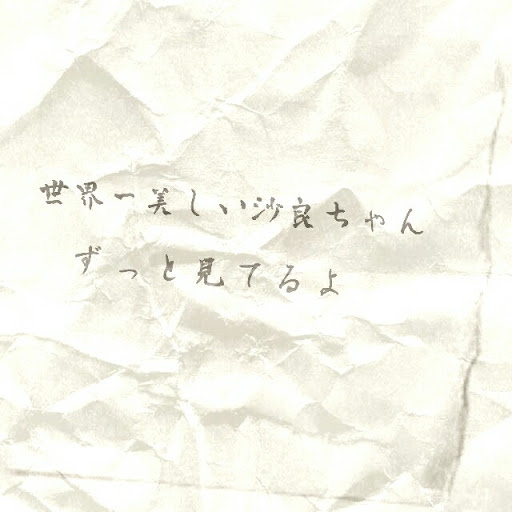 世界一美しい沙良ちゃん
ずっと見てるよ